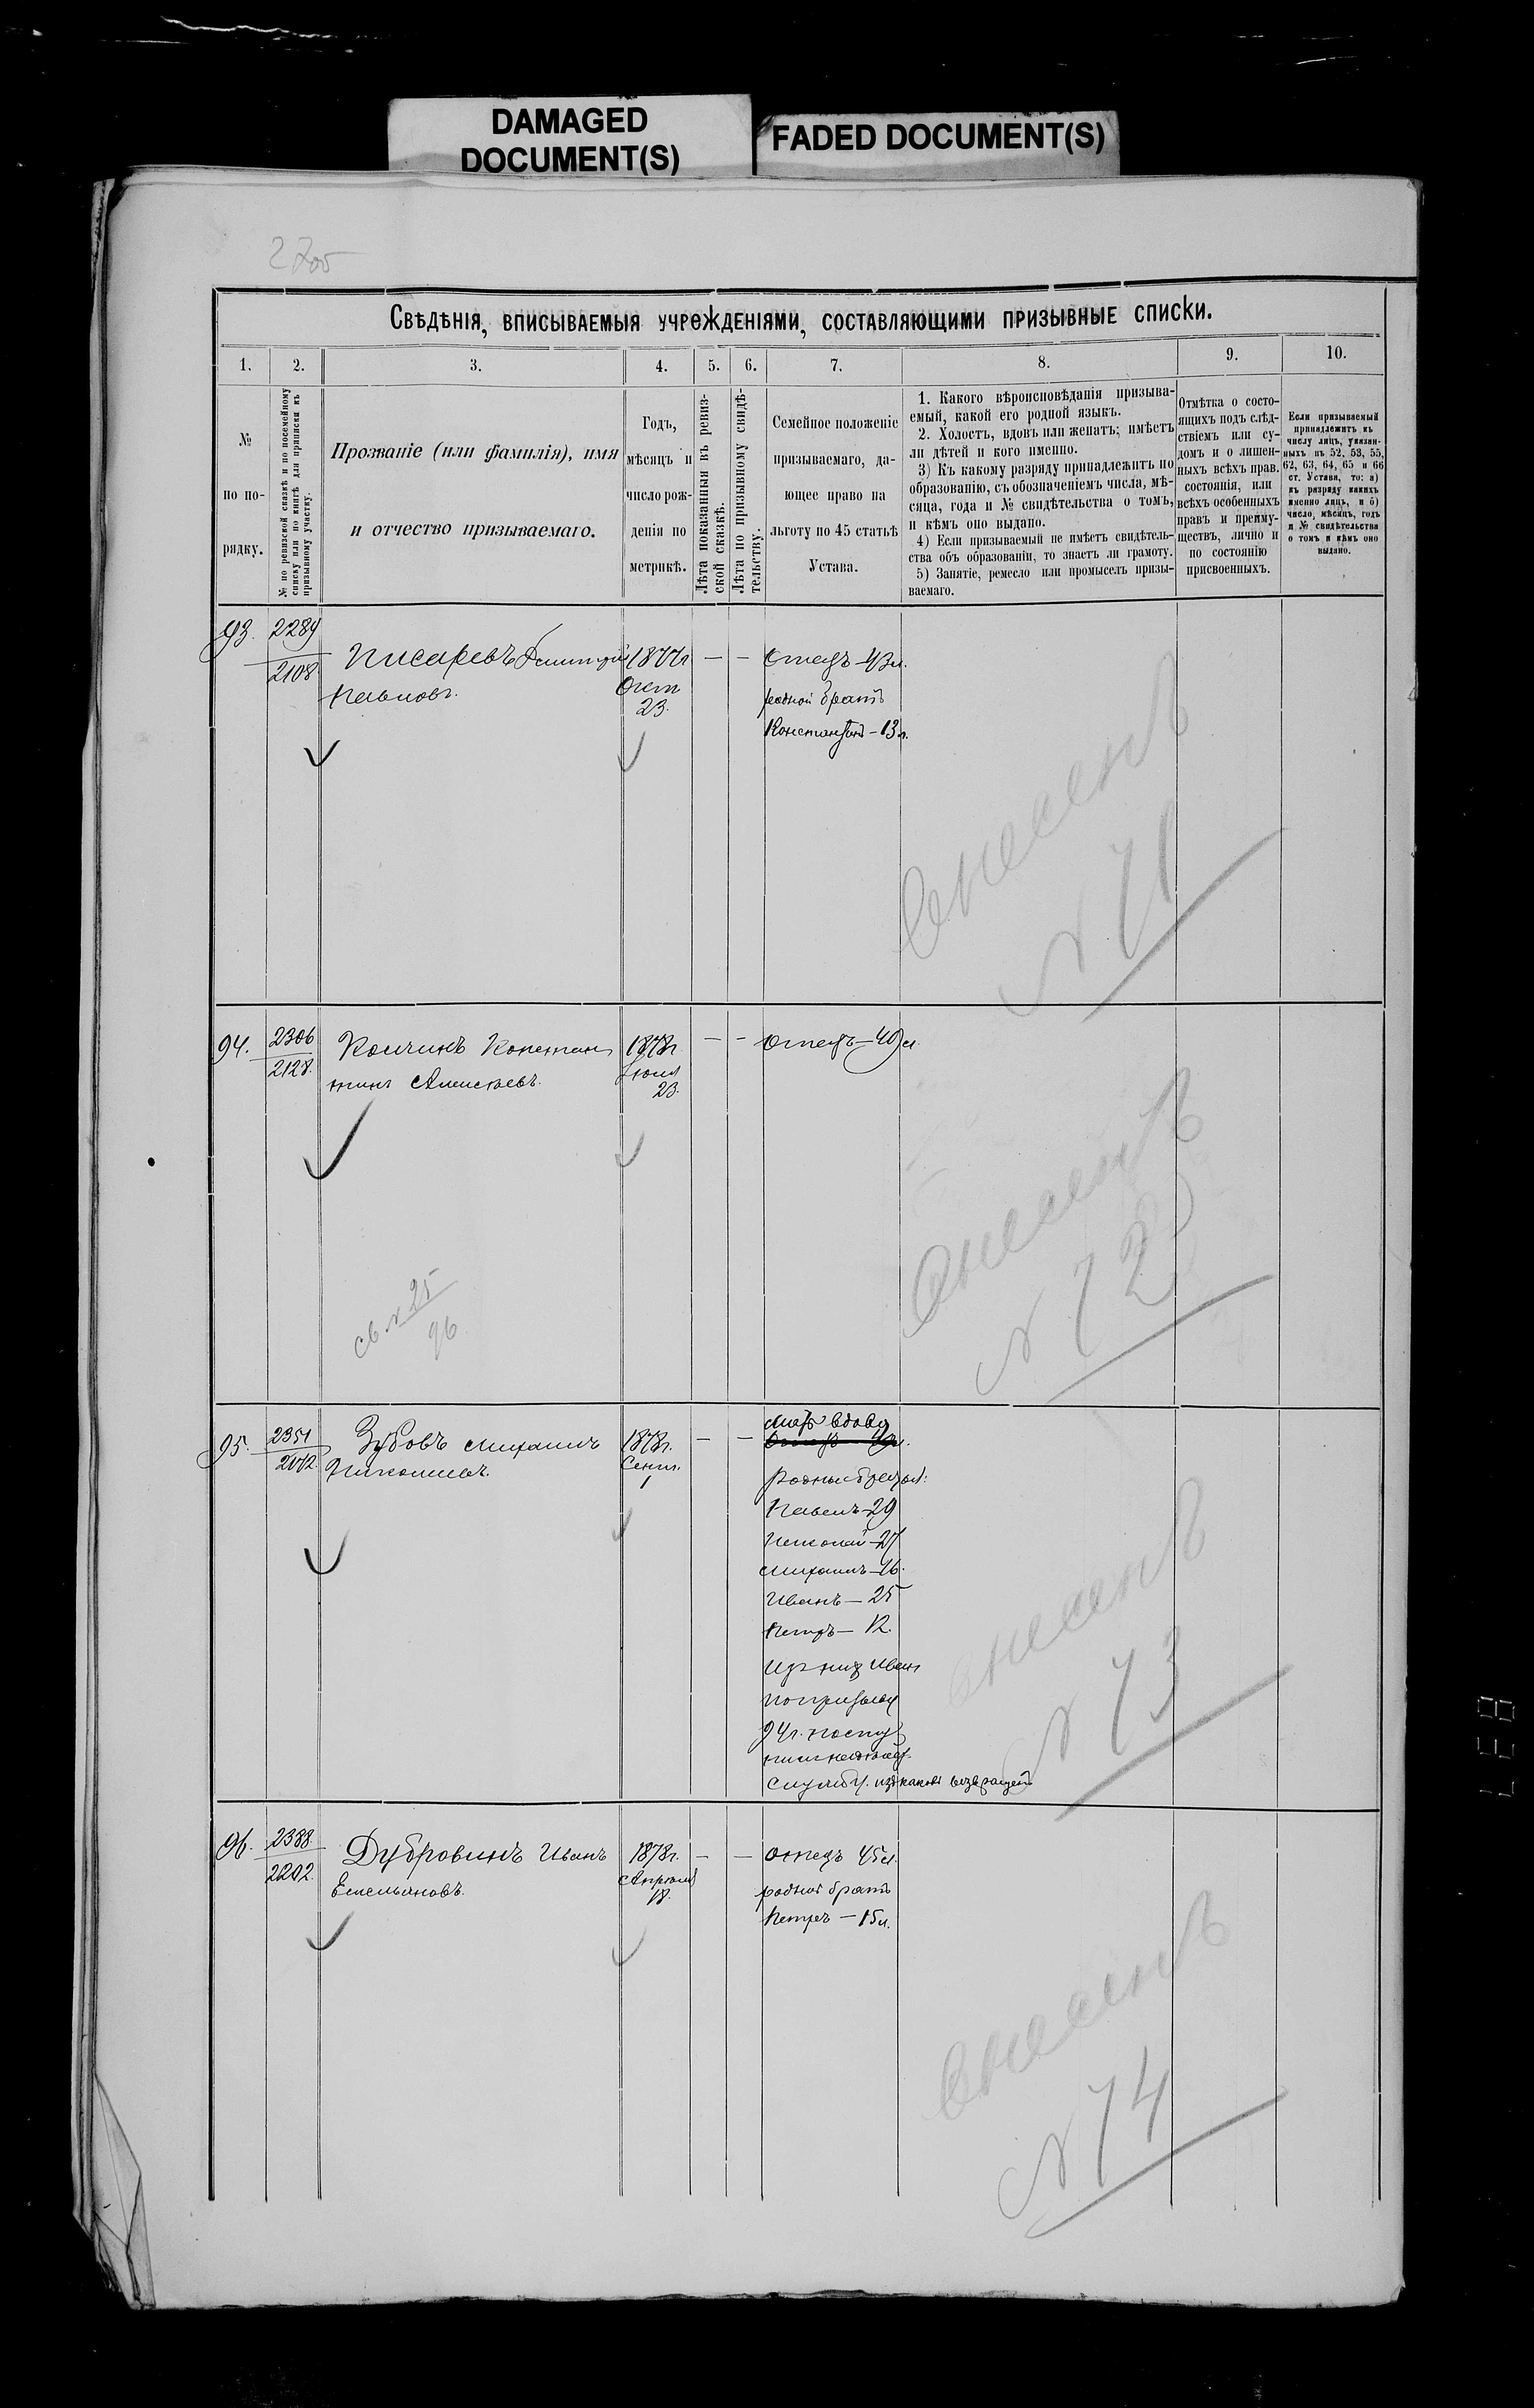 DAMAGED
DOCUMENT(S)
FADED DOCUMENT(S)
Свѣдѣнія, вписываемыя учрежденіями, составляющими призывные списки.
1. 2. 3. 4. 5. 6. 7. 8. 9. 10.
№
по по-
рядку.
№ по ревизской сказкѣ и по посемейному
списку или по книгѣ для приписки къ
призывному участку.
Прозваніе (или фамилія), имя
и отчество призываемаго.
Годъ,
мѣсяцъ и
число рож-
денія по
метрикѣ.
Лѣта показанныя въ ревиз-
ской сказкѣ.
Лѣта по призывному свидѣ-
тельству.
Семейное положеніе
призываемаго, да-
ющее право на
льготу по 45 статьѣ
Устава.
1. Какого вѣроисповѣданія призыва-
емый, какой его родной языкъ.
2. Холостъ, вдовъ или женатъ; имѣетъ
ли дѣтей и кого именно.
3) Къ какому разряду принадлежитъ по
образованію, съ обозначеніемъ числа, мѣ-
сяца, года и № свидѣтельства о томъ,
и кѣмъ оно выдано.
4) Если призываемый не имѣетъ свидѣтель-
ства объ образованіи, то знаетъ ли грамоту.
5) Занятіе, ремесло или промыселъ призы-
ваемаго.
Отмѣтка о состо-
ящихъ подъ слѣд-
ствіемъ или су-
домъ и о лишен-
ныхъ всѣхъ прав.
состоянія, или
всѣхъ особенныхъ
правъ и преиму-
ществъ, лично и
по состоянію
присвоенныхъ.
Если призываемый
принадлежитъ къ
числу лицъ, указан-
ныхъ въ 52, 53, 55,
62, 63, 64, 65 и 66
ст. Устава, то: а)
къ разряду какихъ
именно лицъ, и б)
число, мѣсяцъ, годъ
и № свидѣтельства
о томъ и кѣмъ оно
выдано.
93. 2289 Писаревъ Дмитрій 1877г — — Отецъ 43 л.
2108 Павловъ. Окт
23.
родной братъ
Константинъ – 13 л.
внесенъ
№ 71
94. 2306 Константинъ 1878г — — Отецъ – 40 л
2128. Алексѣевъ. Іюля
23.
св. № 25
96
внесенъ
№ 72
95. 2351 Зубовъ Михаилъ 1878г. — — мать вдова
Николаевъ. Сент.
1
Родные братья:
Павелъ – 29
Николай – 27
Михаилъ – 16.
Иванъ – 25
Петръ – 12.
Изъ них Иванъ
по призыву
94г. поступ
службу.
внесенъ
№ 73
96. 2388 Дубровинъ Иванъ 1878г. — — отецъ 45 л.
2202. Емельяновъ. Апрѣля
18.
родной братъ
Петръ – 15 л.
внесенъ
№ 74
LEB